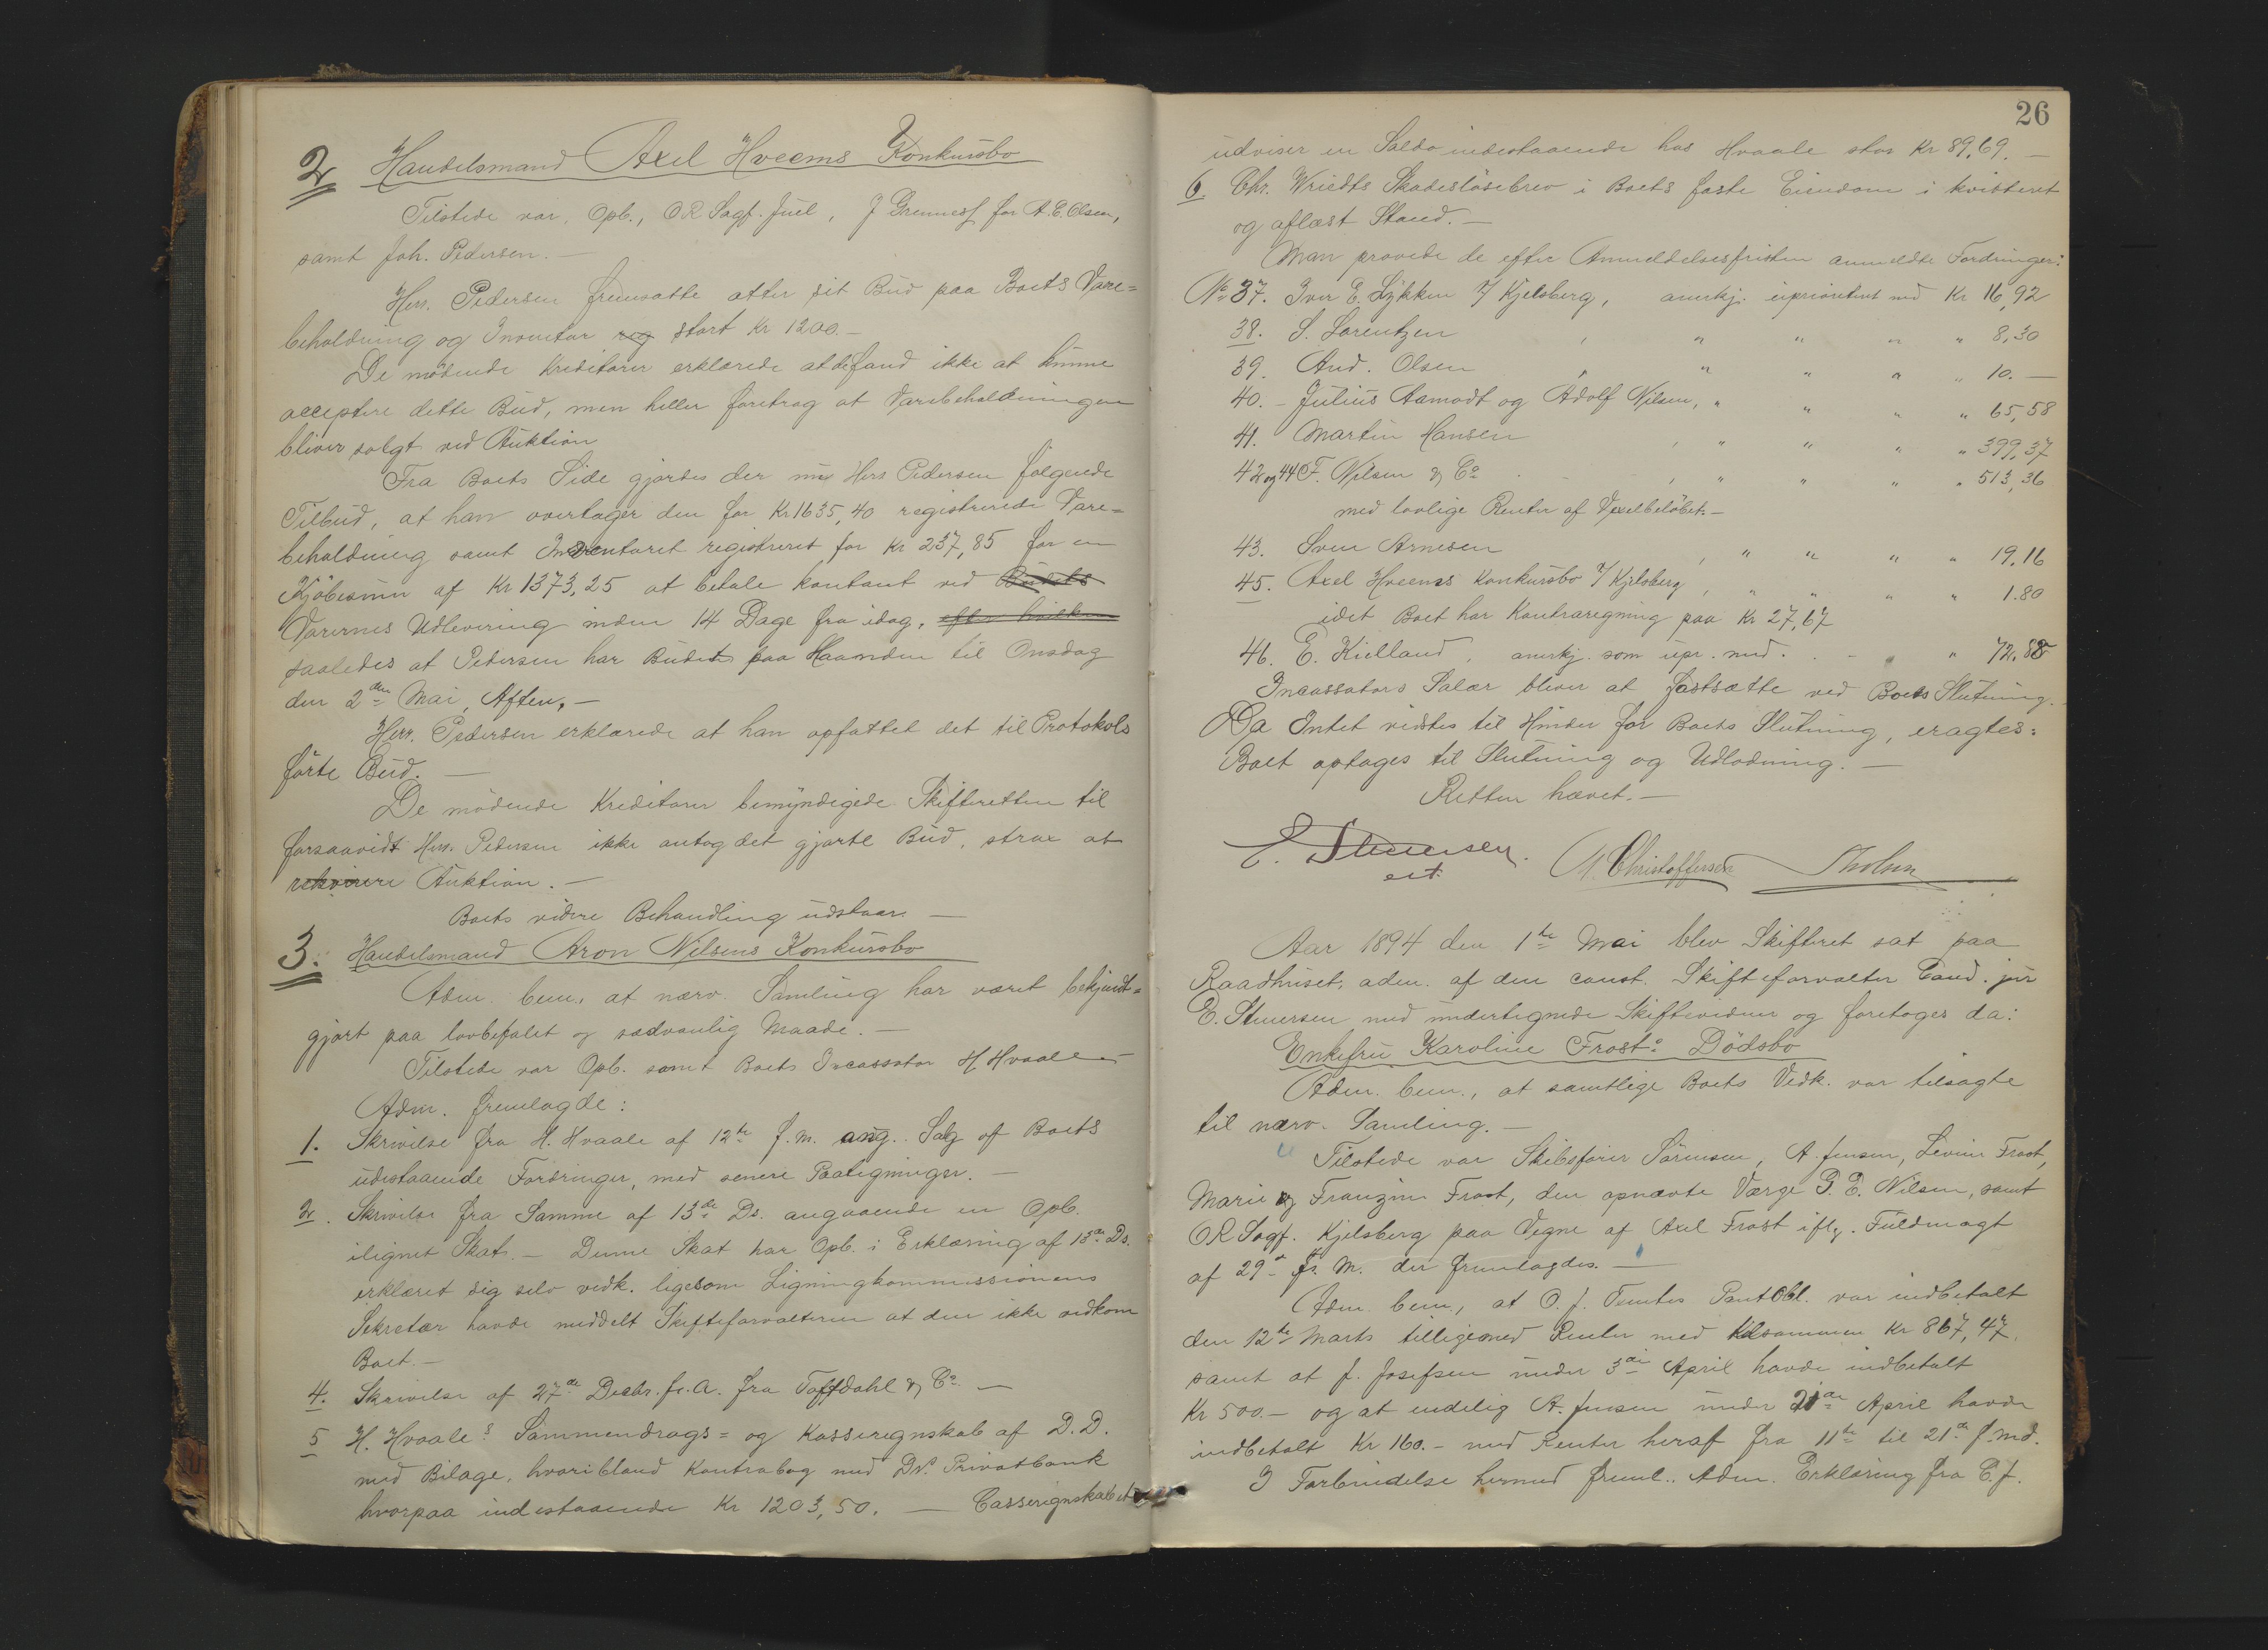 2 Handelsmand Axel Hveems Konkursbo
Tilstede var Opb., O.R.Sagf. Juel, J Grennes f. for A.E. Olsen,
samt Joh. Pedersen. —
Herr. Pedersen fremsatte atter sit Bud paa Boets Vare=
beholdning og Inventar stort Kr 1200.—
De mødende Kreditorer erklærede at de fand ikke at kunne
acceptere dette Bud, men heller foretrag at Varebeholdningen
bliver solgt ved Auktion
Fra Boets Side gjordes der nu Herr Pedersen følgende
Tilbud, at han overtager den for Kr 1635,40 registrerede Vare=
beholdning samt Inventaret registreret for Kr 237,85 for en
Kjöbesum af Kr 1373,25 at betale kontant ved Budets
Varernes Udlevering inden 14 Dage fra idag, efter hvilken
saaledes at Pedersen har Budet paa Haanden til Onsdag
den 2den Mai, Aften. —
Herr. Pedersen erklærede at han opfattet det til Protokols
förte Bud. —
De mödende Kreditorer bemyndigede Skifteretten til
forsaavidt Herr. Pedersen ikke antog det gjorte Bud, strax at
rekvirere Auktion. —
Boets videre Behandling udstaar. —
3. Handelsmand Aron Nilsens Konkursbo
Adm. bem., at nærv. Samling har været bekjendt=
gjort paa lovbefalet og sædvanlig Maade. —
Tilstede var Opb. samt Boets Incassator H. Hvaale —
Adm. fremlagde:
1. Skrivelse fra H. Hvaale af 12te f.m. ang. Salg af Boets
udestaaende Fordringer, med senere Paategninger. —
2. Skrivelse fra Samme af 13de Ds. angaaende en Opb.
ilignet Skat. — Denne Skat har Opb. i Erklæring af 13de Ds.
erklæret sig selv vedk. ligesom Ligningkommissionens
Sekretær havde meddelt Skifteforvalteren at den ikke vedkom
Boet. —
4. Skrivelse af 27de Decbr. f.A. fra Toffdahl & Co. —
5 H. Hvaales Sammendrags= og Kasseregnskab af D.D.
med Bilage, hvoribland Kontrabog med Ds. Privatbank
hvorpaa indestaaende Kr 1203,50. — Casseregnskabet
26
udviser en Saldo indestaaende hos Hvaale stor Kr 89,69. —
6. Chr. Wriedts Skadeslösebrev i Boets faste Eiendom i kvitteret
og aflæst Stand. —
Man prøvede de efter Anmeldelsesfristen anmeldte Fordringer:
No 37. Iver E. Lykken v/ Kjelsberg, anerkj. uprioriteret med Kr 16,92
38. S. Lorentzen , " " " " 8,30
39. And. Olsen , " " " " 10. —
40. - Julius Aamodt og Adolf Nilsen, " " " " 65,58
41. Martin Hansen , " " " " 399,37
42 og 44 F. Nilsen & Co , " " " " 513,36
med lovlige Renter af Vexelbelöbet. —
43. Sven Arnesen , " " " " 19,16
45. Axel Hveems Konkursbo v/ Kjelsberg , " " " " 1.80
idet Boet har Kontraregning paa Kr 27,67
46. E. Kielland, anerkj. som upr. med. . - " " 72.88
Incassators Salær bliver at fastsætte ved Boets Slutning.
Da Intet vidstes til Hinder for Boets Slutning, eragtes:
Boet optages til Slutning og Udlodning. —
Retten hævet. —
E. Stuersen. M. Christoffersen Tholsen
cst.
Aar 1894 den 1te Mai blev Skifteret sat paa
Raadhuset, adm. af den const. Skifteforvalter Cand. jur
E. Stuersen med undertegnede Skiftevidner og foretoges da:
Enkefru Karoline Frosts Dödsbo
Adm. bem., at samtlige Boets Vedk. var tilsagte
til nærv. Samling. —
Tilstede var Skibsförer Sörensen, A. Jensen, Levine Frost,
Marie og Franzine Frost, den opnævte Værge G. E. Nilsen, samt
O.R.Sagf. Kjelsberg paa Vegne af Axel Frost iflg. Fuldmagt
af 29de f. M. der fremlagdes. —
Adm. bem., at O. J. Tuntes Pant Obl. var indbetalt
den 12te Marts tilligemed Renter med tilsammen Kr 867,47.
samt at J. Josefsen under 3die April havde indbetalt
Kr 500.— og at endelig A. Jensen under 21de April havde
indbetalt Kr 160.— med Renter heraf fra 11te til 21de f. Md.
I Forbindelse hermed freml. Adm. Erklæring fra C. J.